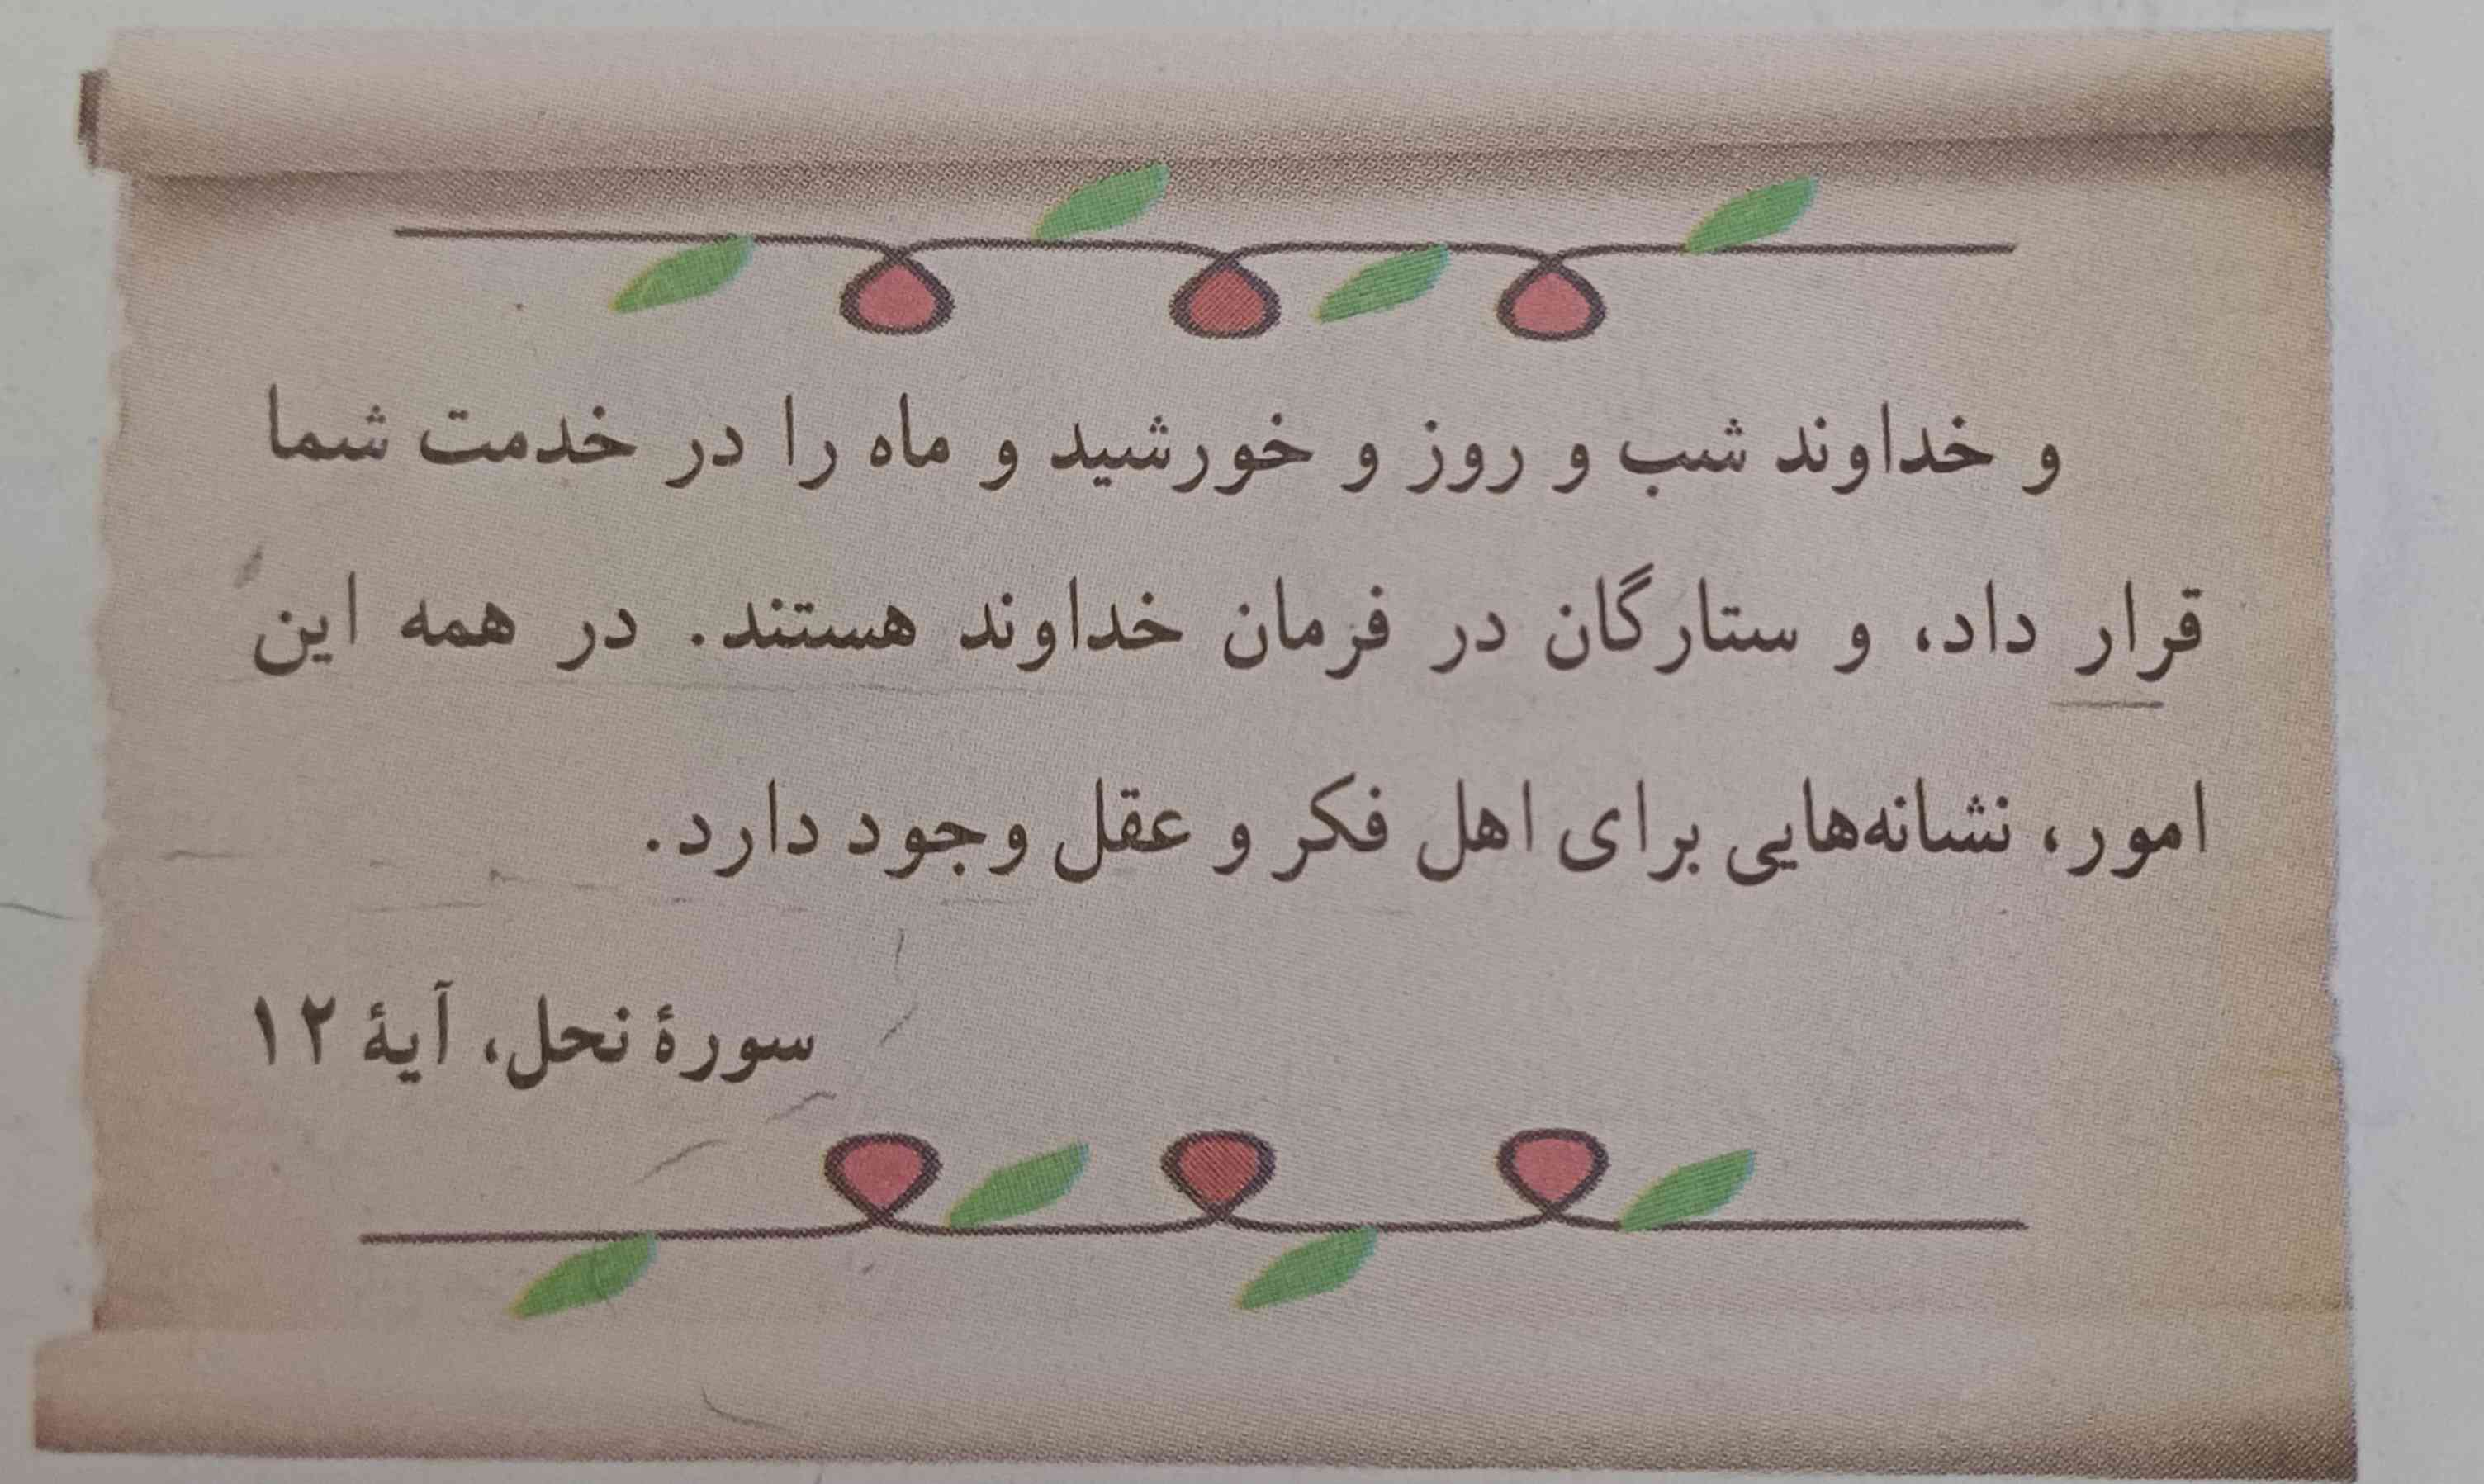 و خداوند شب و روز و خورشید و ماه را در خدمت شما
قرار داد، و ستارگان در فرمان خداوند هستند. در همه این
امور، نشانه‌هایی برای اهل فکر و عقل وجود دارد.
سورهٔ نحل، آیهٔ ۱۲